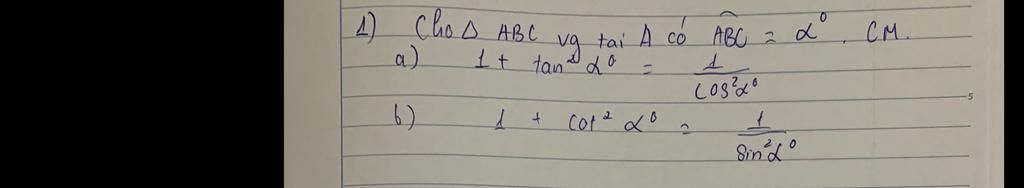 1) Cho Δ ABC vg tai A có ABC = α⁰. CM.
a) 1 + tan² α⁰ = 1/cos²α⁰
b) 1 + cot² α⁰ = 1/sin²α⁰
5